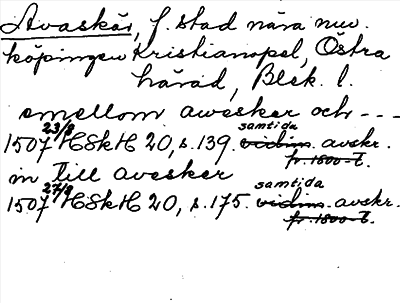 Avaskär, f. stad nära nuv.
köpingen Kristianopel, Östra
härad, Blek. l.
emellom awesker och ---
1507 23/8 HSkH 20, s. 139. samtida vidim. avskr.
fr. 1500-t.
in till avesker
1507 27/8 HSkH 20, s. 175. samtida vidim. avskr.
fr. 1500-t.